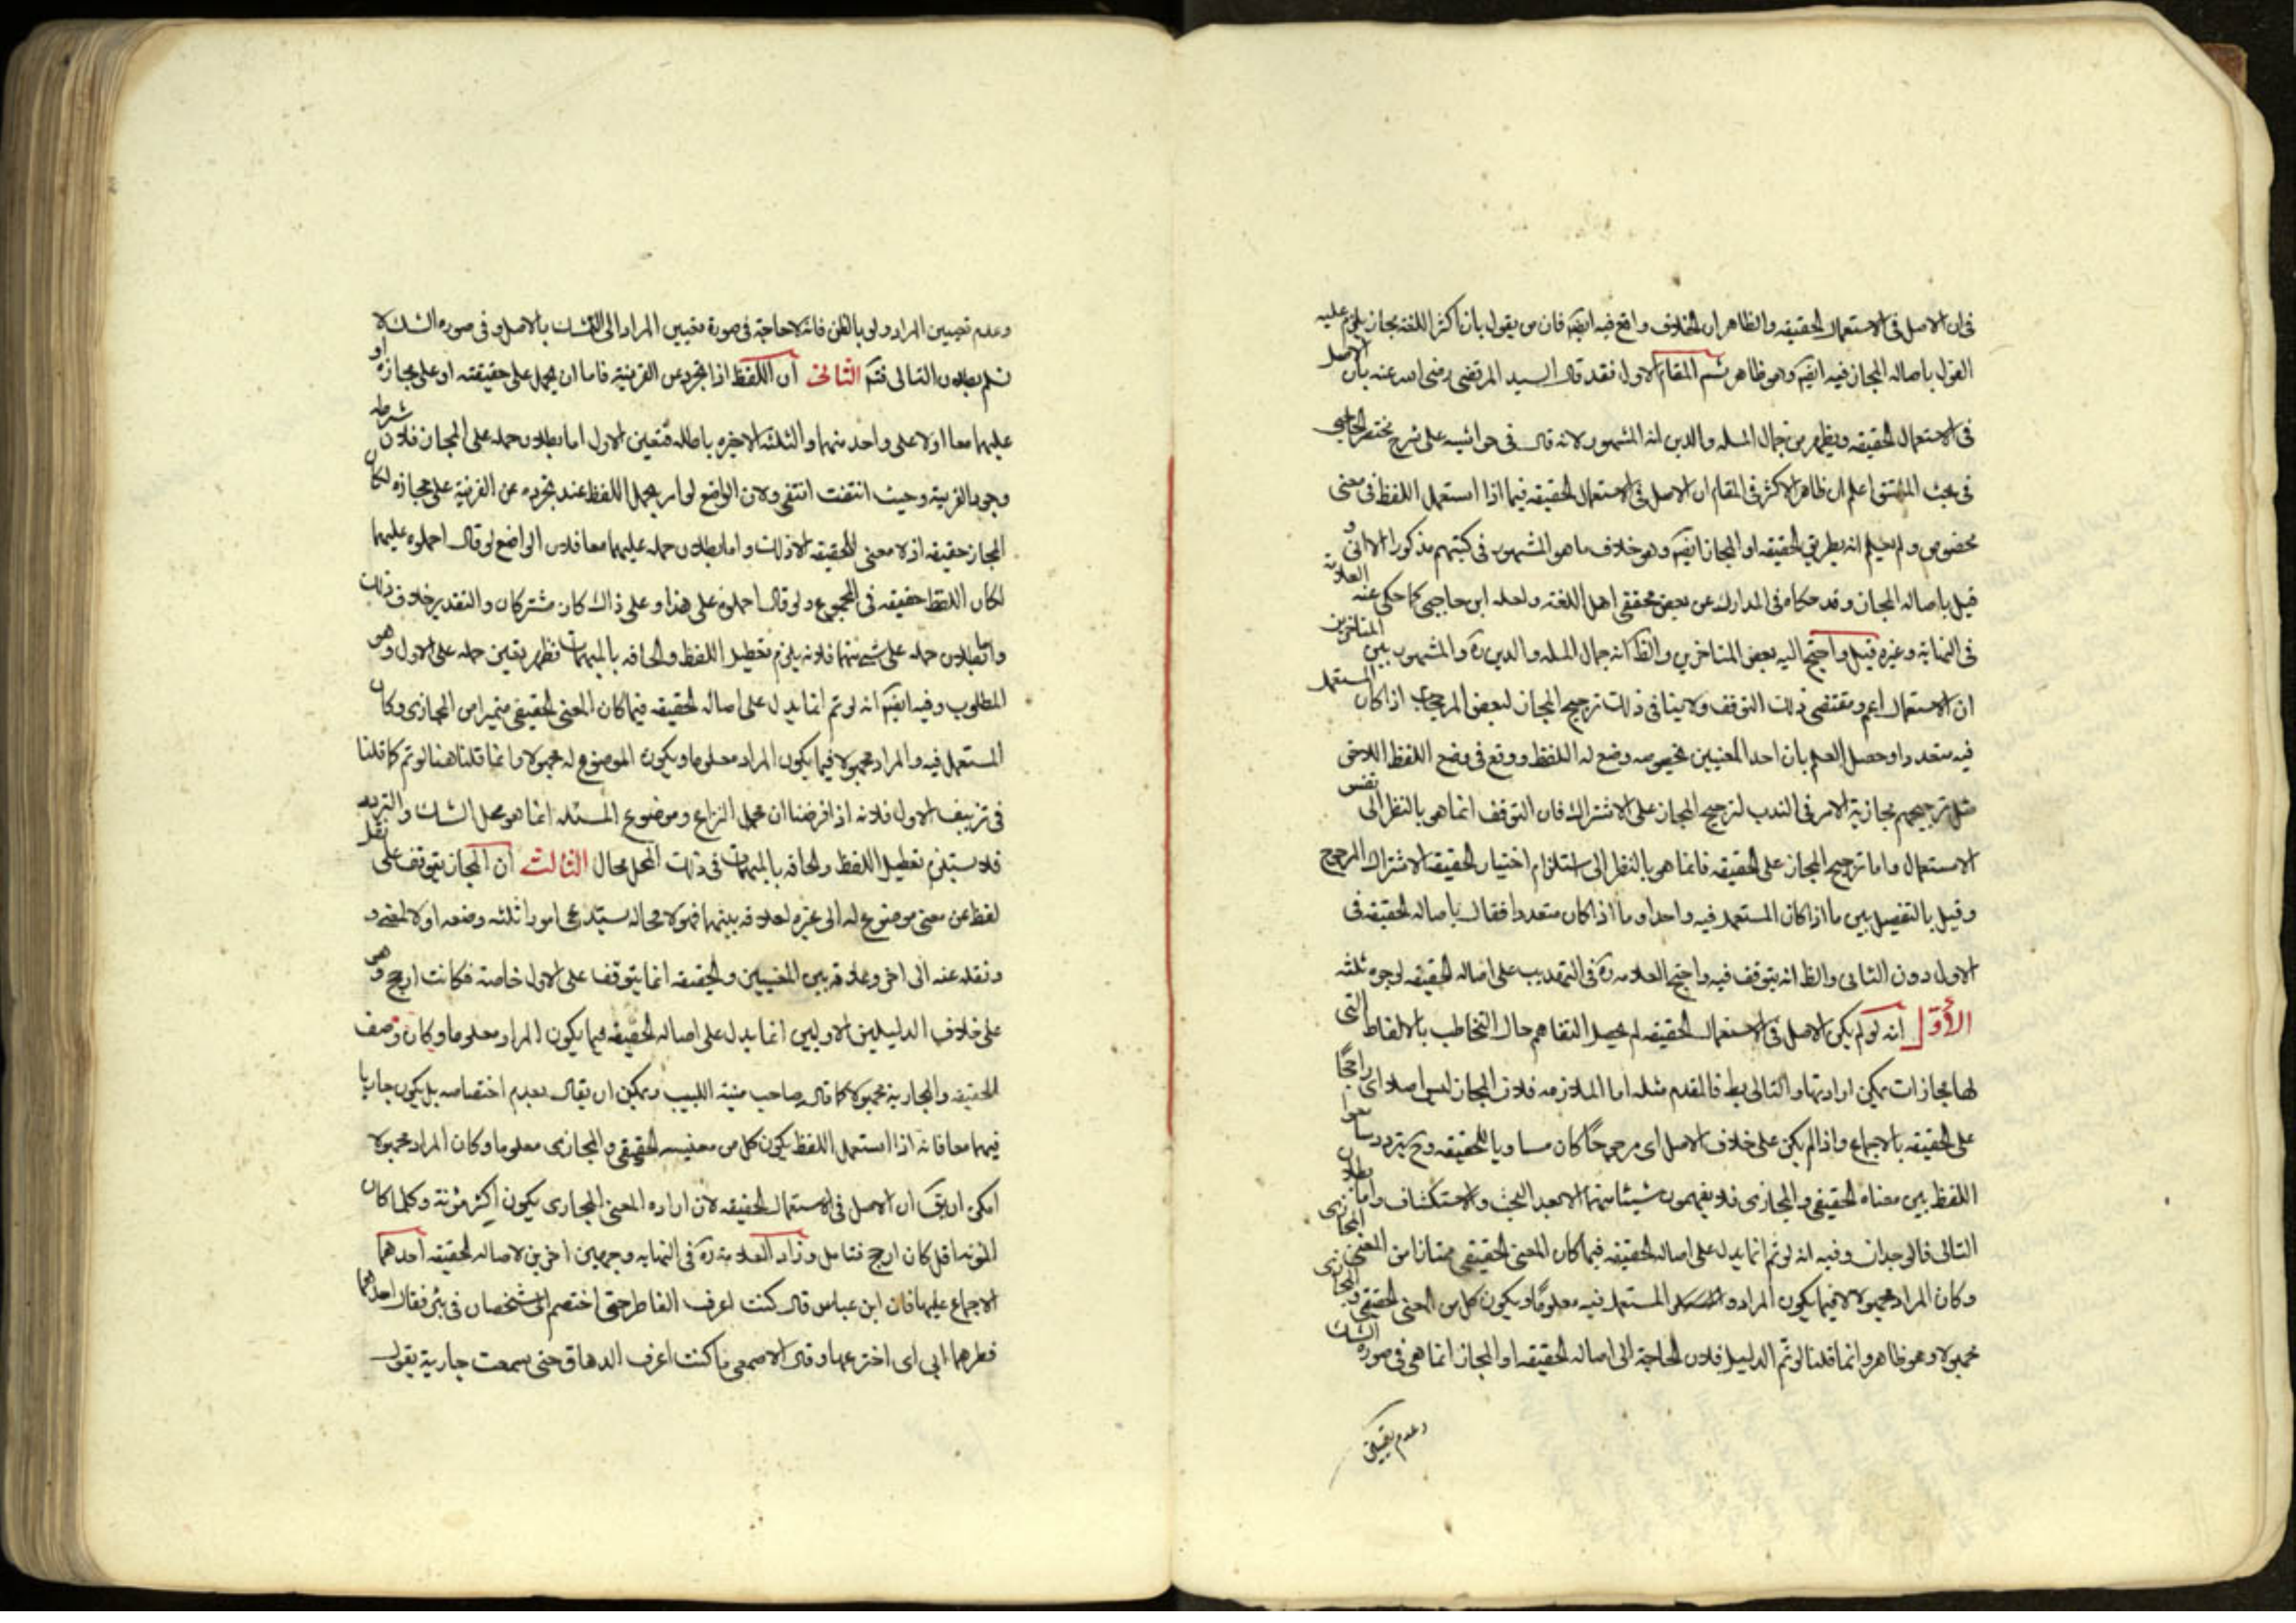 في ان الاصل في الاستعمال الحقيقه والظاهر ان الخلاف واقع فيه ايضم فان من يقول بان اكثر اللغة مجاز يلزم عليه
القول باصاله المجاز فيه ايضم وهو ظاهر ثم المقام الاول فقد قال السيد المرتضى رضي الله عنه بان الاصل
في الاستعمال الحقيقه ويظهر من جمال المله والدين انه المشهور لانه قال في حواشيه على شرح مختصر الحاجبي
في بحث المشتق اعلم ان ظاهر الاكثر في المقام ان الاصل في الاستعمال الحقيقه فيما اذا استعمل اللفظ في معنى
مخصوص ولم يعلم انه بطريق الحقيقه او المجاز ايضم وهو خلاف ما هو المشهور في كتبهم مذكورا الا انى و
قيل باصاله المجاز وقد حكاه في المدارك عن بعض محققي اهل اللغة ولعله ابن حاجبي كما حكى عنه العلامة
في النهاية وغيره قيل واحتج اليه بعض المتاخرين والظ انه جمال المله والدين ره والمشهور بين المتاخرين
ان الاستعمال اعم ومقتضى ذلك التوقف ولا ينافي ذلك ترجيح المجاز لبعض المرجحات اذا كان المستعمل
فيه متعددا وحصل العلم بان احد المعنيين بخصوصه وضع له اللفظ ووقع في وضع اللفظ اللاخر
مثل ترجيحهم مجازية الامر في الندب لترجيح المجاز على الاشتراك فان التوقف انما هو بالنظر الى نفس
الاستعمال واما ترجيح المجاز على الحقيقه فانما هو بالنظر الى استلزام اختيار الحقيقة الاشتراك المرجوح
وقيل بالتفصيل بين ما اذا كان المستعمل فيه واحدا وما اذا كان متعددا فقال باصاله الحقيقه في
الاول دون الثاني والظ انه يتوقف فيه واحتج العلامه ره في التهذيب على اصاله الحقيقه لوجوه ثلثه
الأول انه لو لم يكن الاصل في الاستعمال الحقيقه لم يحصل التفاهم حال التخاطب بالالفاظ التي
لها مجازات يمكن ارادتها والتالي بط فالمقدم مثله اما الملازمه فلان المجاز ليس اصلا اى راجحًا
على الحقيقه بالاجماع واذا لم يكن على خلاف الاصل اى مرجوحًا كان مساويا للحقيقه وح يتردد
اللفظ بين معناه الحقيقي والمجازى فلا يفهمون شيئا منها الا بعد البحث والاستكشاف واما بطلان
التالى فالوجدان وفيه انه لو تم انما يدل على اصاله الحقيقه فيما كان المعنى الحقيقي ممتازا من المعنى المجازى
وكان المراد مجهولا لا فيما يكون المراد و المستعمل فيه معلومًا ويكون كل من المعنى الحقيقي والمجازى
مجهولا وهو ظاهر وانما قلنا لو تم الدليل فلان الحاجة الى اصاله الحقيقه او المجاز انما هي في صورة الشك
وعدم تعيين
وعدم تعيين المراد ولو بالظن فانه لا حاجة في صورة تعيين المراد الى التشبث بالاصل وفي صوره الشك لا
نسلم بطلان التالى فتم الثانى أن اللفظ اذا تجرد عن القرينة فاما ان يحمل على حقيقته او على مجازه او
عليهما معا اولا على واحد منهما والثلثة الاخيره باطله فتعين الاول اما بطلان حمله على المجاز فلان شرطه
وجود القرينة وحيث انتفت انتفى ولان الواضع لو امر بحمل اللفظ عند تجرده عن القرينة على مجازه لكان
المجاز حقيقه اذ لا معنى للحقيقه الا ذلك واما بطلان حمله عليهما معا فلان الواضع لو قال احملوه عليهما
لكان اللفظ حقيقه في المجموع ولو قال احملوه على هذا وعلى ذاك كان مشتركان والتقدير خلاف ذلك
واما بطلان حمله على شئ منهما فلانه يلزم تعطيل اللفظ والحاقه بالمهملات فظهر تعين حمله على الاول وهو
المطلوب وفيه ايضم انه لو تم انما يدل على اصاله الحقيقه فيما كان المعنى الحقيقي متميزا من المجازى وكان
المستعمل فيه والمراد مجهولا فيما يكون المراد معلوما ويكون الموضوع له مجهولا وانما قلنا هنا لو تم كما قلنا
في تزييف الاول فلانه اذا فرضنا ان محل النزاع وموضوع المسئله انما هو محل الشك والترديد
فلا يستلزم تعطيل اللفظ والحاقه بالمهملات في ذلك المحل محال الثالث أن المجاز يتوقف على نقل
لفظ عن معنى موضوع له الى غيره لعلاقه بينهما فهو لا محاله يستدعى امورا ثلثه وضعه اولا لمعنى و
ونقله عنه الى اخر وعلاقة بين المعنيين والحقيقه انما يتوقف على الاول خاصة فكانت ارجح وهو
على خلاف الدليلين الاوليين انما يدل على اصاله الحقيقه فيما يكون المراد معلوما وكان وصف
الحقيقه والمجازية مجهولا كما قال صاحب منية اللبيب ويمكن ان يقال بعدم اختصاصه بل يكون جاريا
فيهما معا فانه اذا استعمل اللفظ يكون كل من معنييه الحقيقي والمجازى معلوما وكان المراد مجهولا
امكن ان يق ان الاصل في الاستعمال الحقيقه لان اراده المعنى المجازى يكون اكثر مؤنة وكلما كان
المؤنه اقل كان ارجح فتامل وزاد العلامة ره في النهايه وجهين اخرين لاصاله الحقيقه احدهما
الاجماع عليها فان ابن عباس قال كنت اعرف الفاطر حتى اختصم الى شخصان في بئر فقال احدهما
فطرهما ابي اى اخترعها وقال الاصمعى ما كنت اعرف الدهاق حتى سمعت جارية يقول